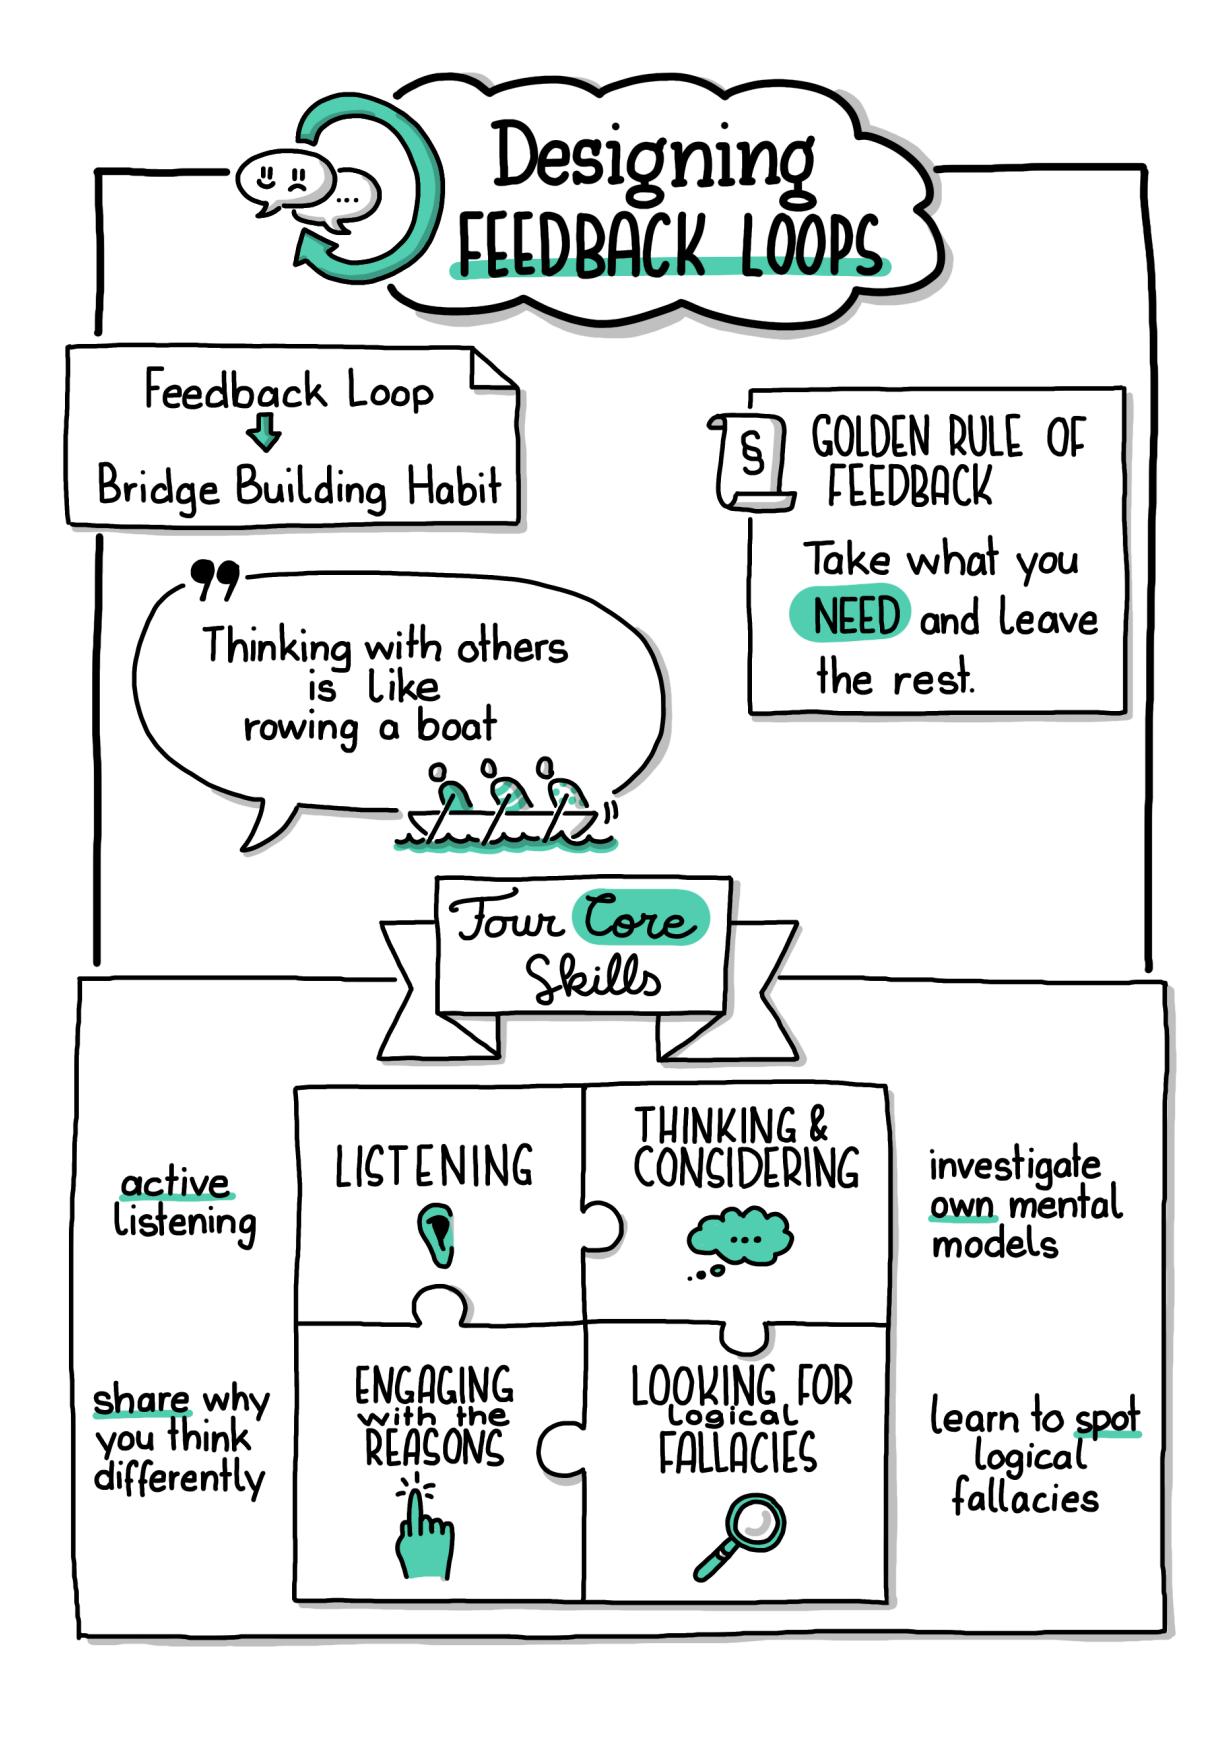 Designing
FEEDBACK LOOPS
Feedback Loop
Bridge Building Habit
§
GOLDEN RULE OF
FEEDBACK
Take what you
NEED and leave
the rest.
"
Thinking with others
is like
rowing a boat
Four Core
Skills
LISTENING
active
listening
THINKING &
CONSIDERING
...
investigate
own mental
models
ENGAGING
with the
REASONS
share why
you think
differently
LOOKING FOR
logical
FALLACIES
learn to spot
logical
fallacies